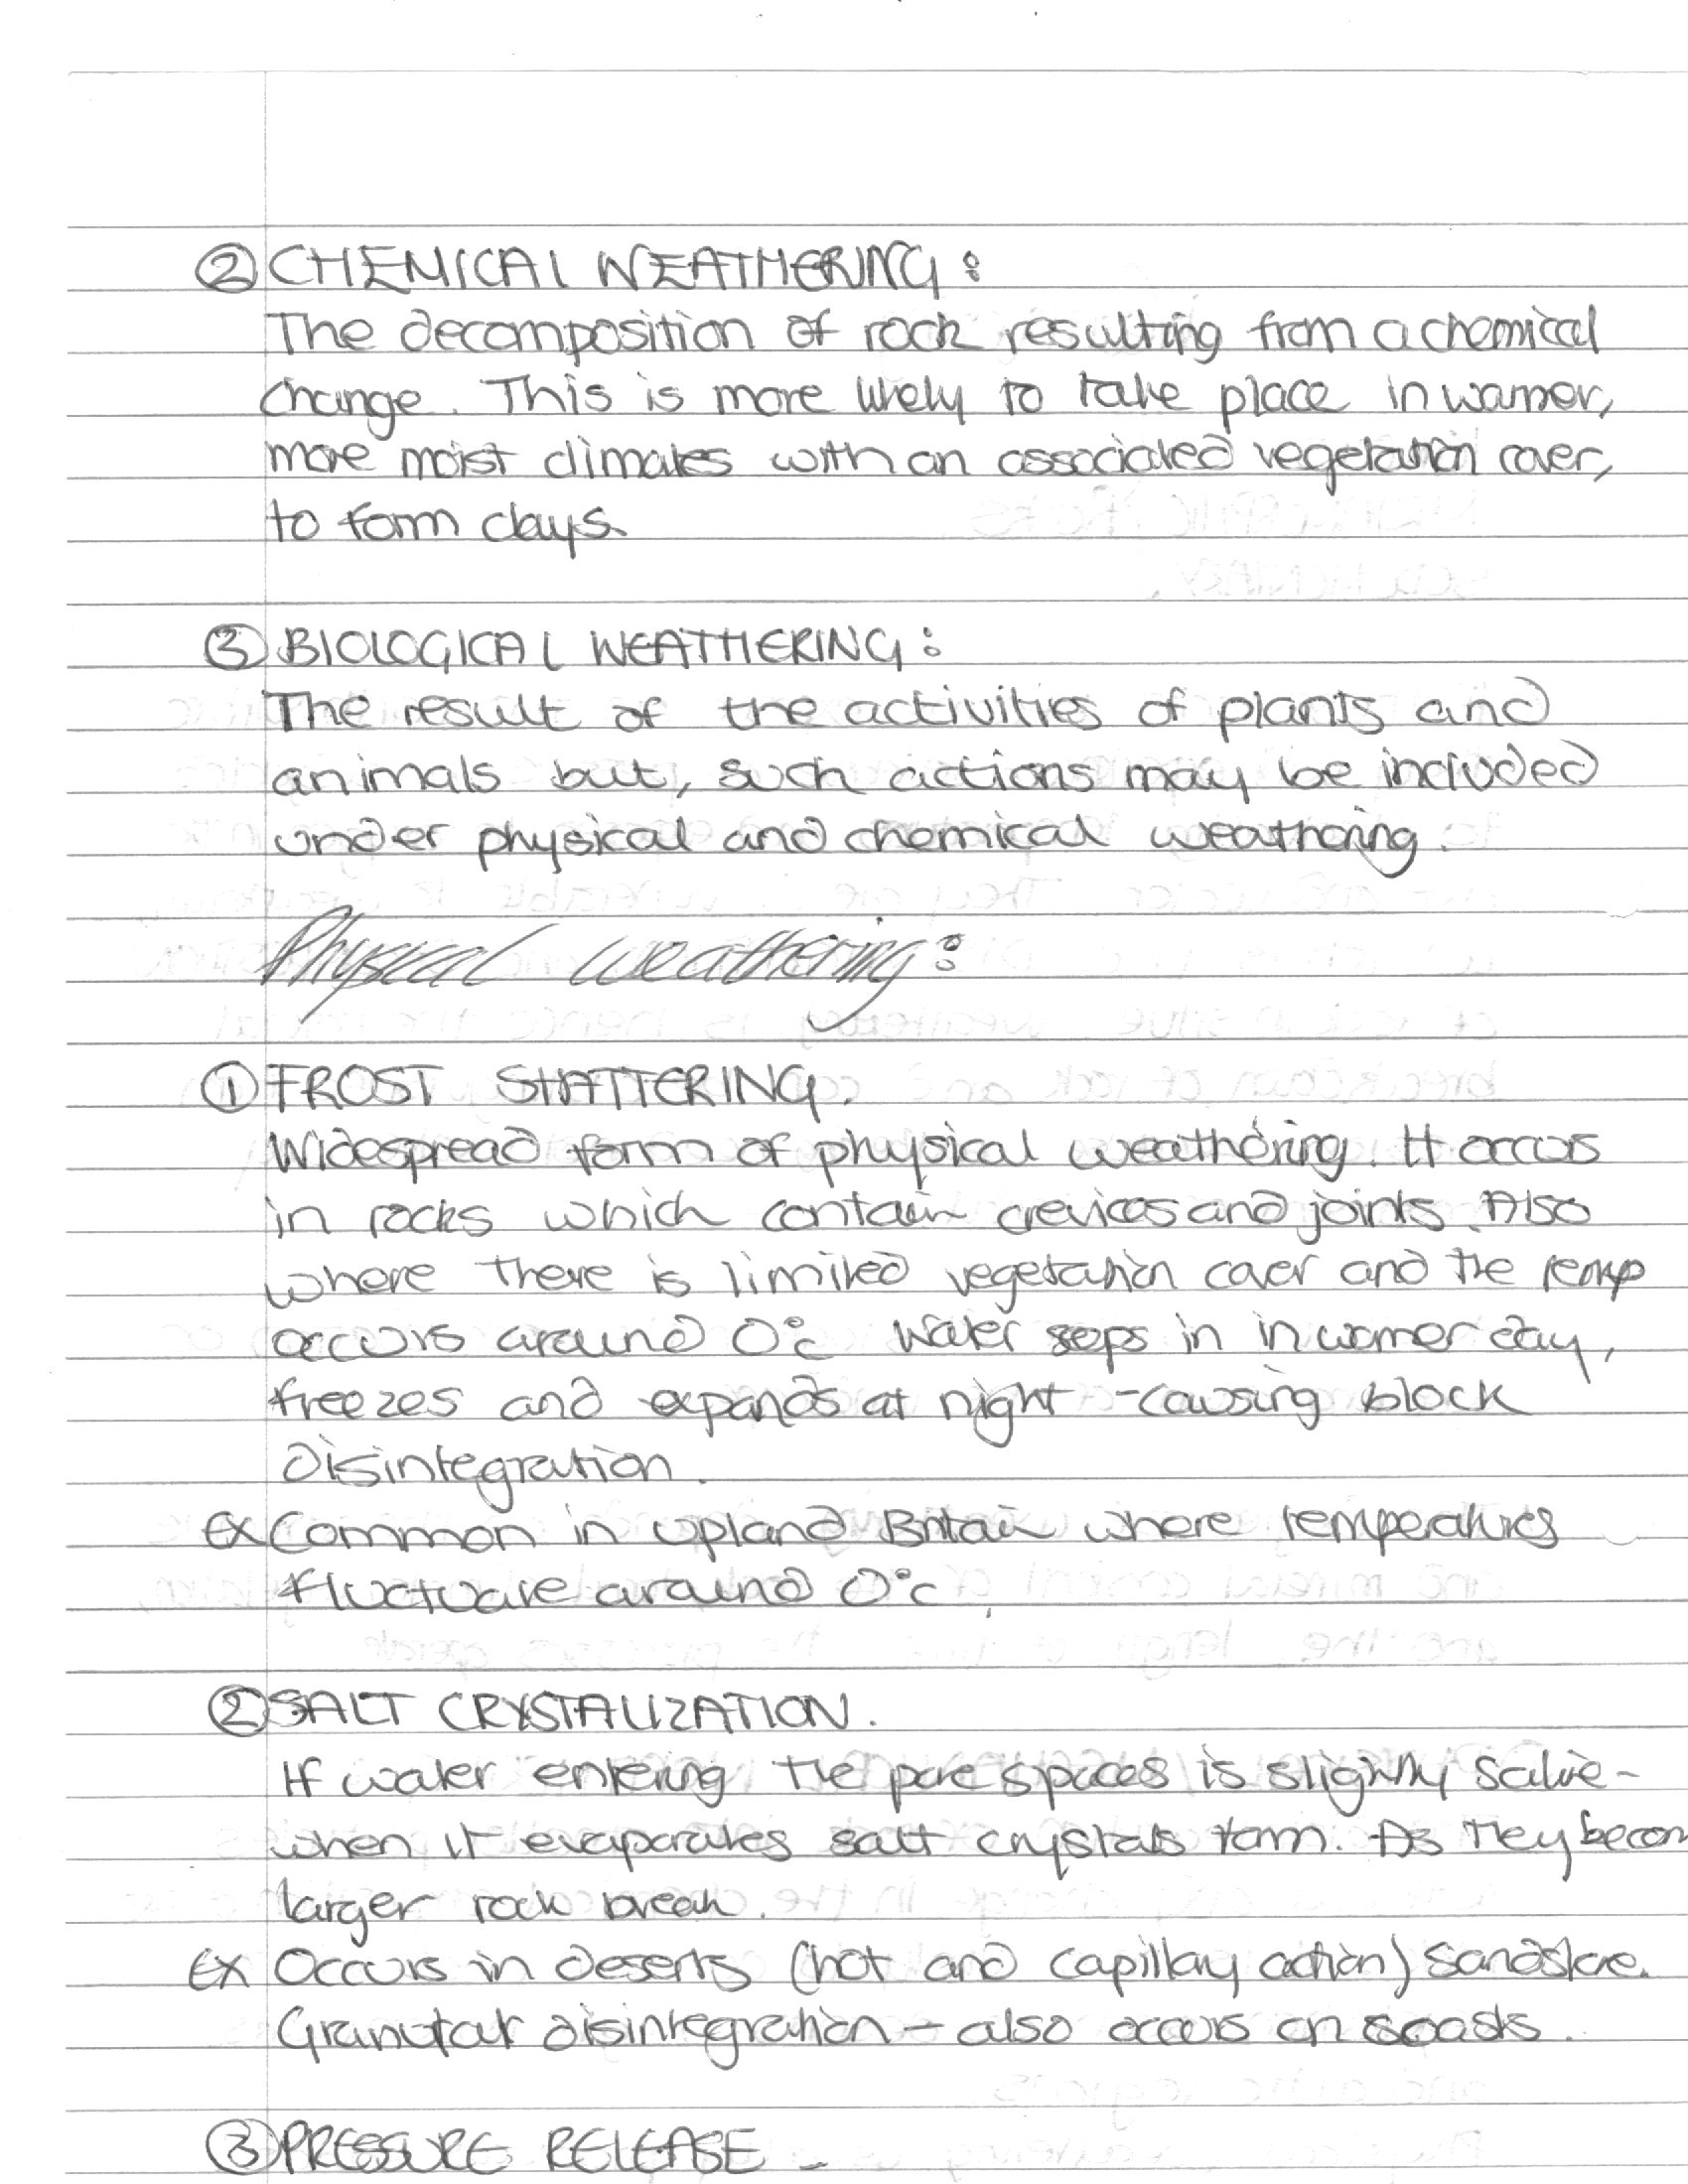 ② CHEMICAL WEATHERING:
The decomposition of rock resulting from a chemical
change. This is more likely to take place in warmer,
more moist climates with an associated vegetation cover,
to form clays.
③ BIOLOGICAL WEATHERING:
The result of the activities of plants and
animals but, such actions may be included
under physical and chemical weathering.
Physical weathering:
① FROST SHATTERING.
Widespread form of physical weathering. It occurs
in rocks which contain crevices and joints. Also
where there is limited vegetation cover and the temp
occurs around 0°c Water seps in in warmer day,
freezes and expands at night - causing block
disintegration.
EX Common in upland Britain where temperatures
fluctuate around 0°c.
② SALT CRYSTALIZATION.
If water entering the pore spaces is slightly saline -
when it evaporates salt crystals form. As they becom
larger rock break.
EX Occurs in deserts (hot and capillary action) Sandstone.
Granular disintegration - also occurs on coasts.
③ PRESSURE RELEASE -